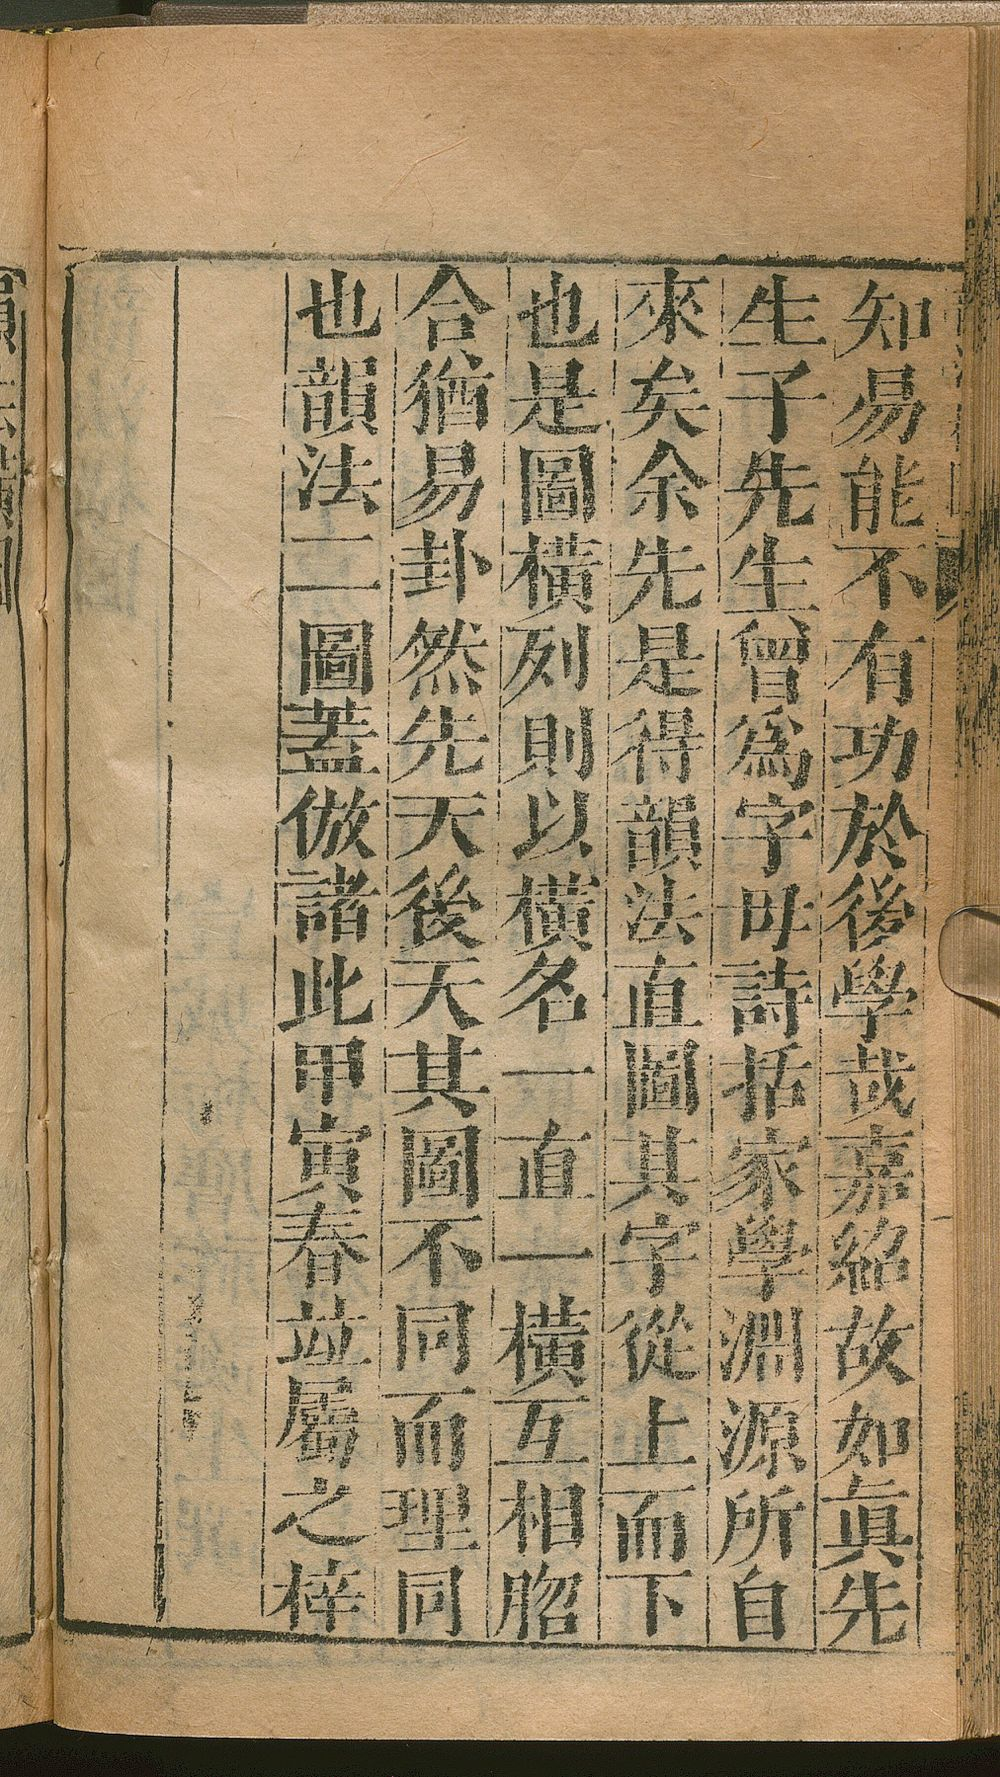 知易能不有功於後學哉嘉紹故如真先
生子先生曾為字母詩括家學淵源所自
來矣余先是得韻法直圖其字從上而下
也是圖橫列則以橫名一直一橫互相脗
合猶易卦然先天後天其圖不同而理同
也韻法二圖蓋倣諸此甲寅春並屬之梓